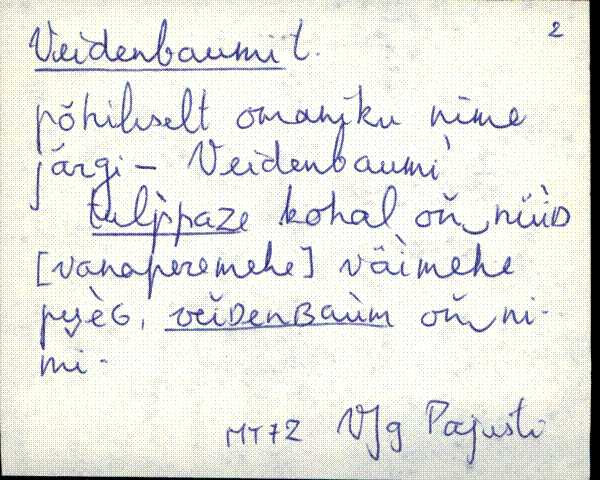 2
Veidenbaumi t.
põhiliselt omaniku nime
järgi – Veidenbaumi
tulʹppaze kohal oň nüìD
[vanaperemehe] väìmehe
veiDenBaùm oň ni-
mi.
MT72 VJg Pajusti